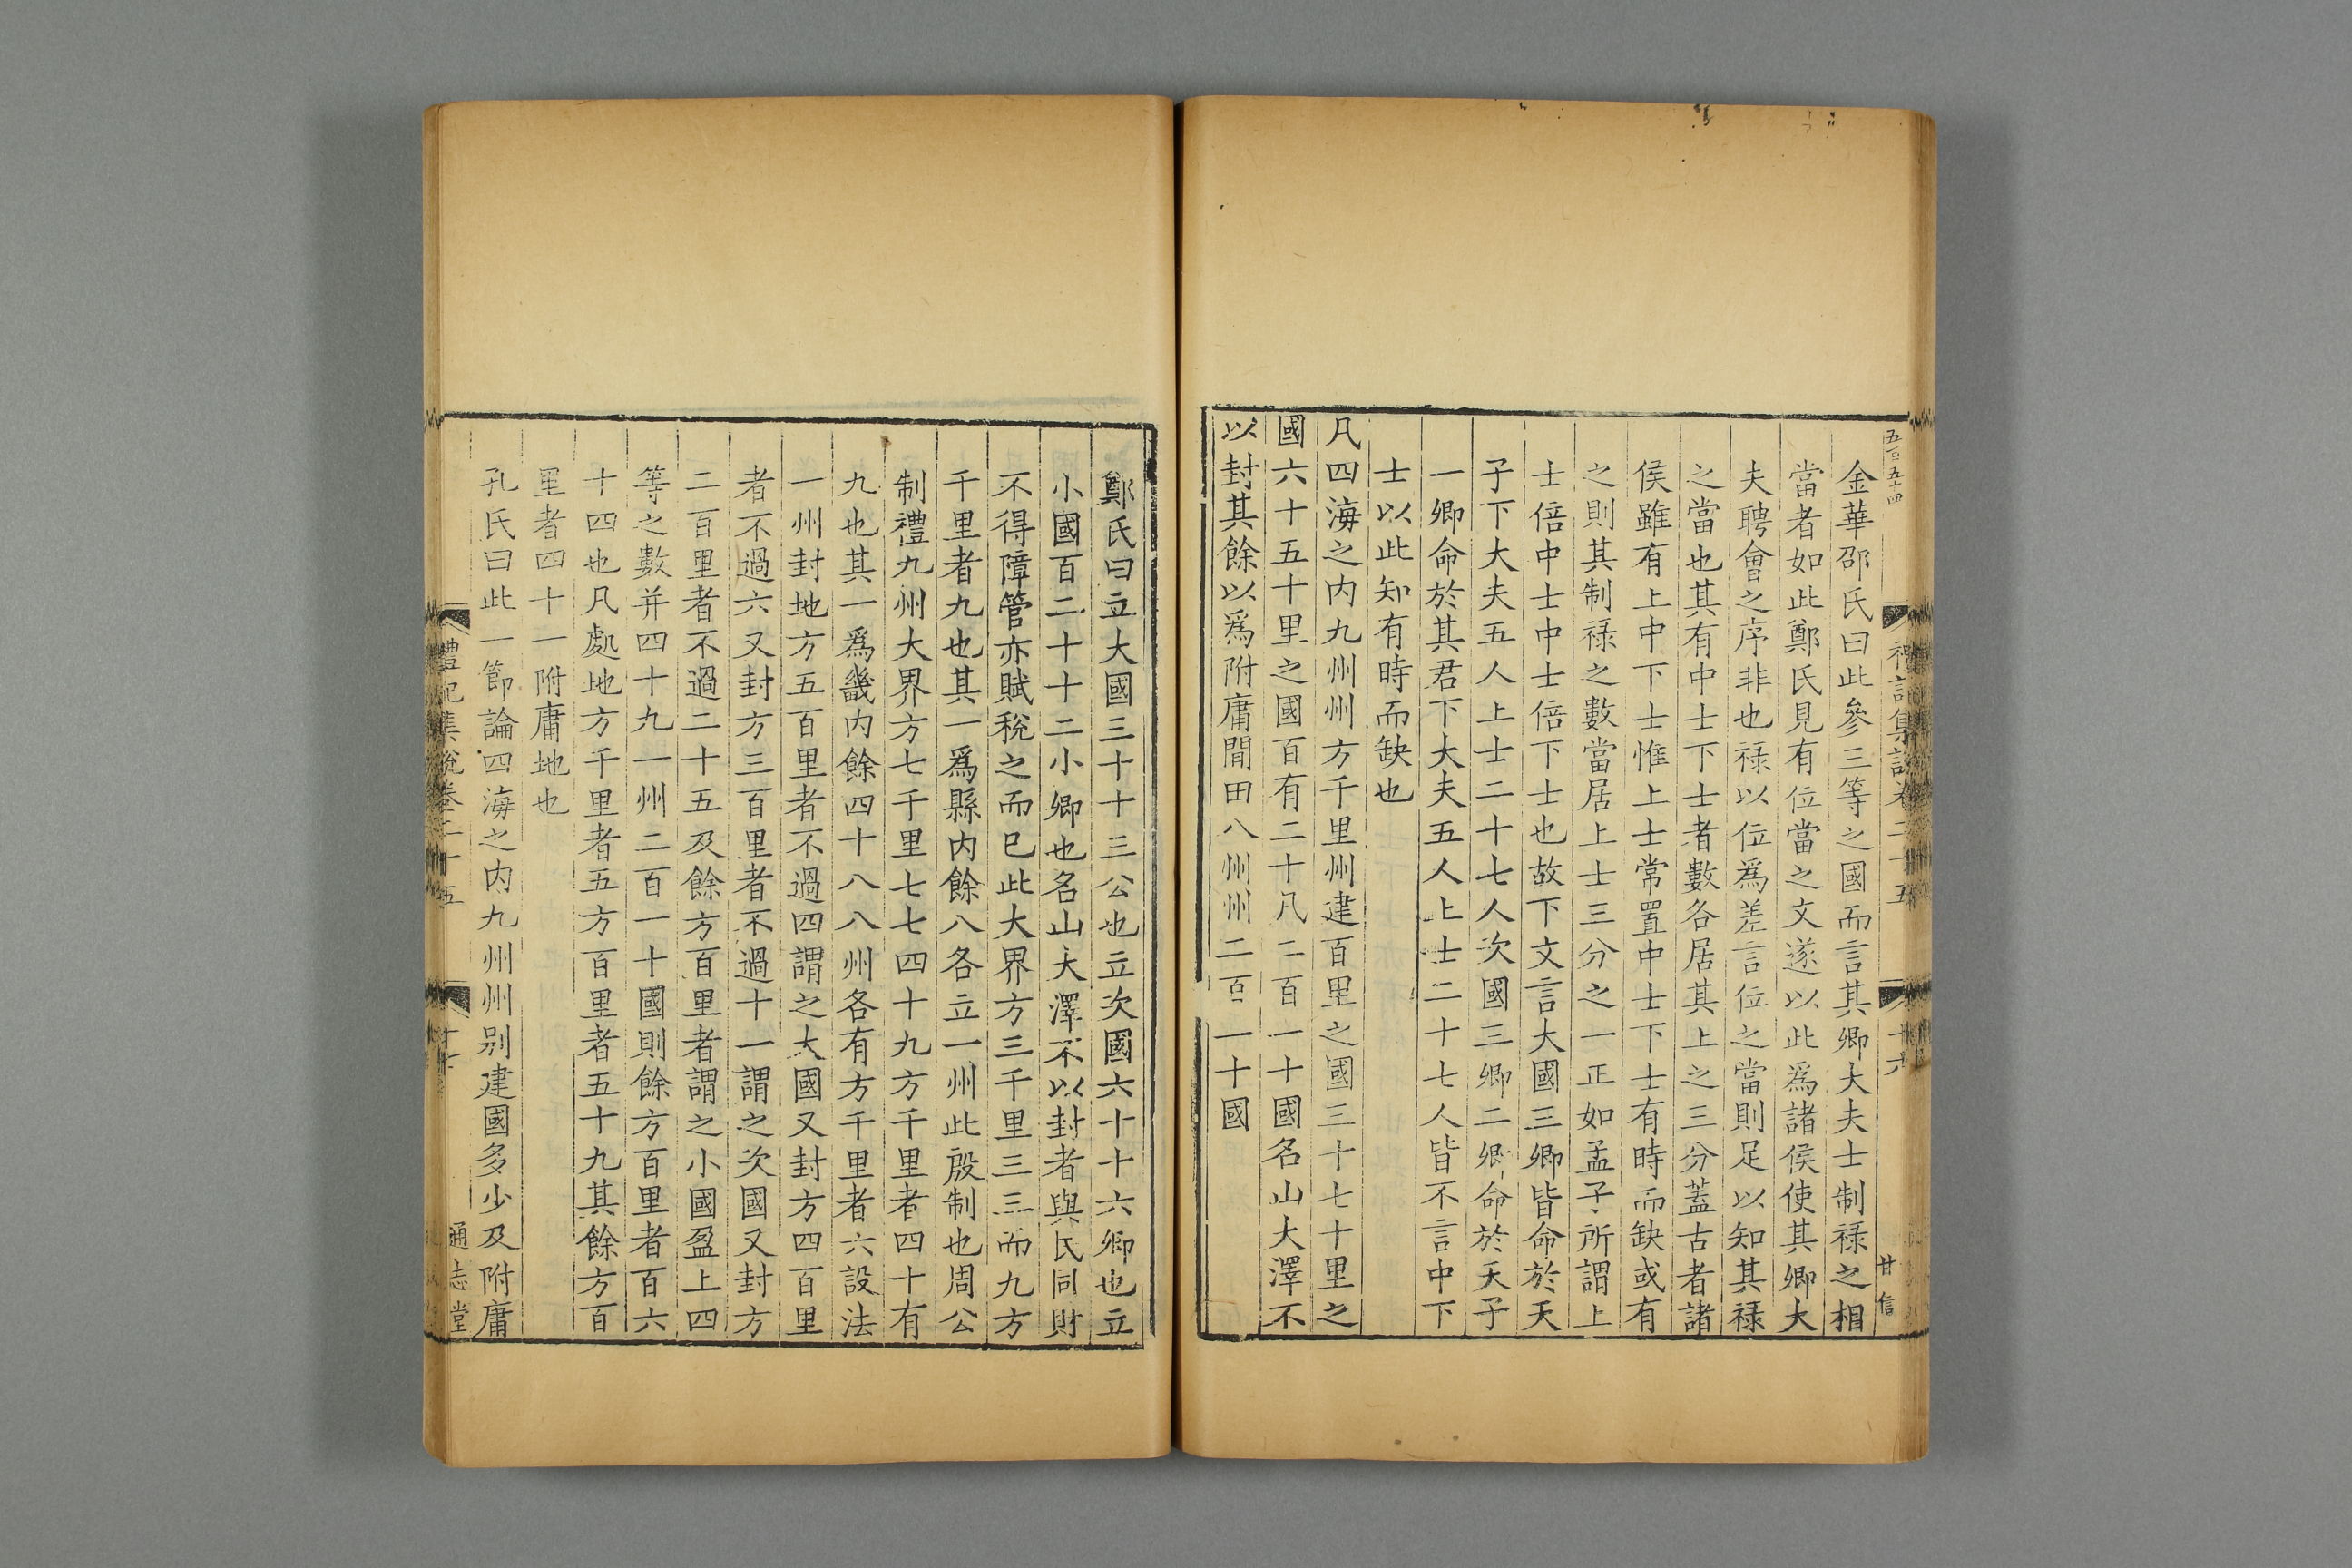 五百五十四
禮記集說卷二十五
十六
甘信
金華邵氏曰此參三等之國而言其卿大夫士制祿之相
當者如此鄭氏見有位當之文遂以此爲諸侯使其卿大
夫聘會之序非也祿以位爲差言位之當則足以知其祿
之當也其有中士下士者數各居其上之三分蓋古者諸
侯雖有上中下士惟上士常置中士下士有時而缺或有
之則其制祿之數當居上士三分之一正如孟子所謂上
士倍中士中士倍下士也故下文言大國三卿皆命於天
子下大夫五人上士二十七人次國三卿二卿命於天子
一卿命於其君下大夫五人上士二十七人皆不言中下
士以此知有時而缺也
凡四海之内九州州方千里州建百里之國三十七十里之
國六十五十里之國百有二十凡二百一十國名山大澤不
以封其餘以爲附庸間田八州州二百一十國
鄭氏曰立大國三十十三公也立次國六十十六卿也立
小國百二十十二小卿也名山大澤不以封者與民同財
不得障管亦賦稅之而已此大界方三千里三三而九方
千里者九也其一爲縣内餘八各立一州此殷制也周公
制禮九州大界方七千里七七四十九方千里者四十有
九也其一爲畿内餘四十八八州各有方千里者六設法
一州封地方五百里者不過四謂之大國又封方四百里
者不過六又封方三百里者不過十一謂之次國又封方
二百里者不過二十五及餘方百里者謂之小國盈上四
等之數并四十九一州二百一十國則餘方百里者百六
十四也凡處地方千里者五方百里者五十九其餘方百
里者四十一附庸地也
孔氏曰此一節論四海之内九州州别建國多少及附庸
禮記集說卷二十五
十七
通志堂